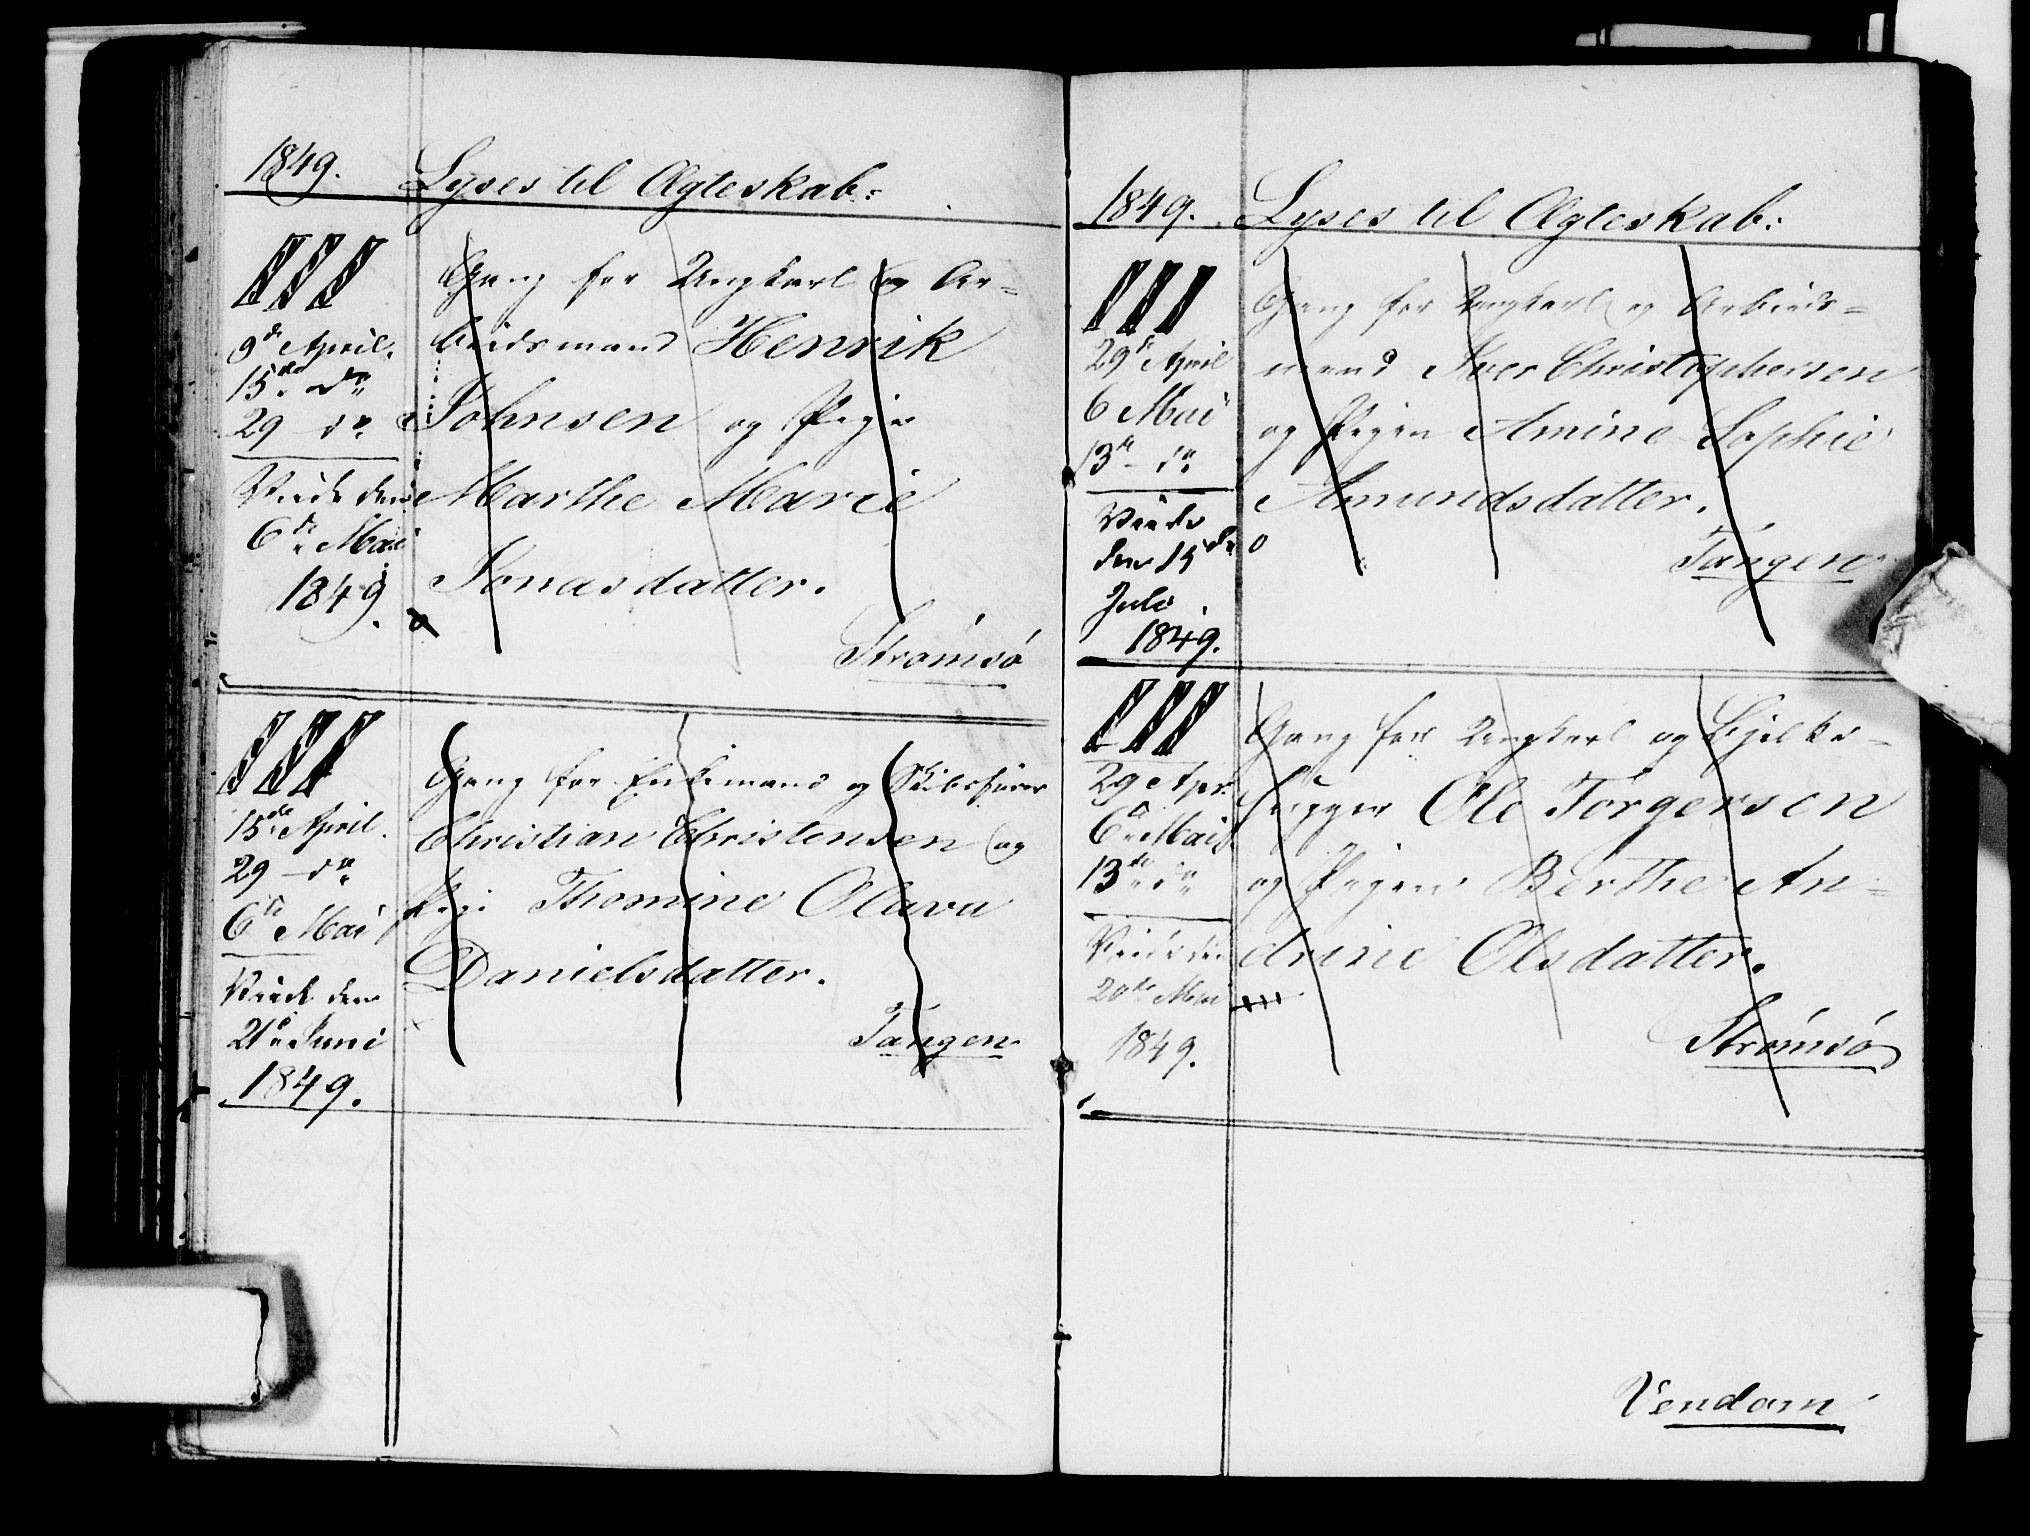 1849. Lyses til Ægteskab:
III
9de April.
15de do
29 - do
Viede den
6te Mai
1849.
Gang for Ungkarl og Ar=
beidsmand Henrik
Johnsen og Pige
Marthe Marie
Jonasdatter.
Strømsø
III
15de April.
29 - do
6te Mai
Viede den
21de Juni
1849.
Gang for Enkemand og Skibsfører
Christian Christensen og
Pige Thomine Olava
Danielsdatter.
Tangen
1849. Lyses til Ægteskab:
III
29de April
6 Mai
13de - do
Viede
den 15de
Juli
1849.
Gang for Ungkarl og Arbeids=
mand Iver Christophersen
og Pigen Amine Sophie
Amundsdatter.
Tangen
III
29 Apr.
6te Mai
13de do
Viede den
20de Mai
1849.
Gang for Ungkarl og Bjelke=
hugger Ole Torgersen
og Pigen Berthe An=
drine Olsdatter.
Strømsø
Vendom